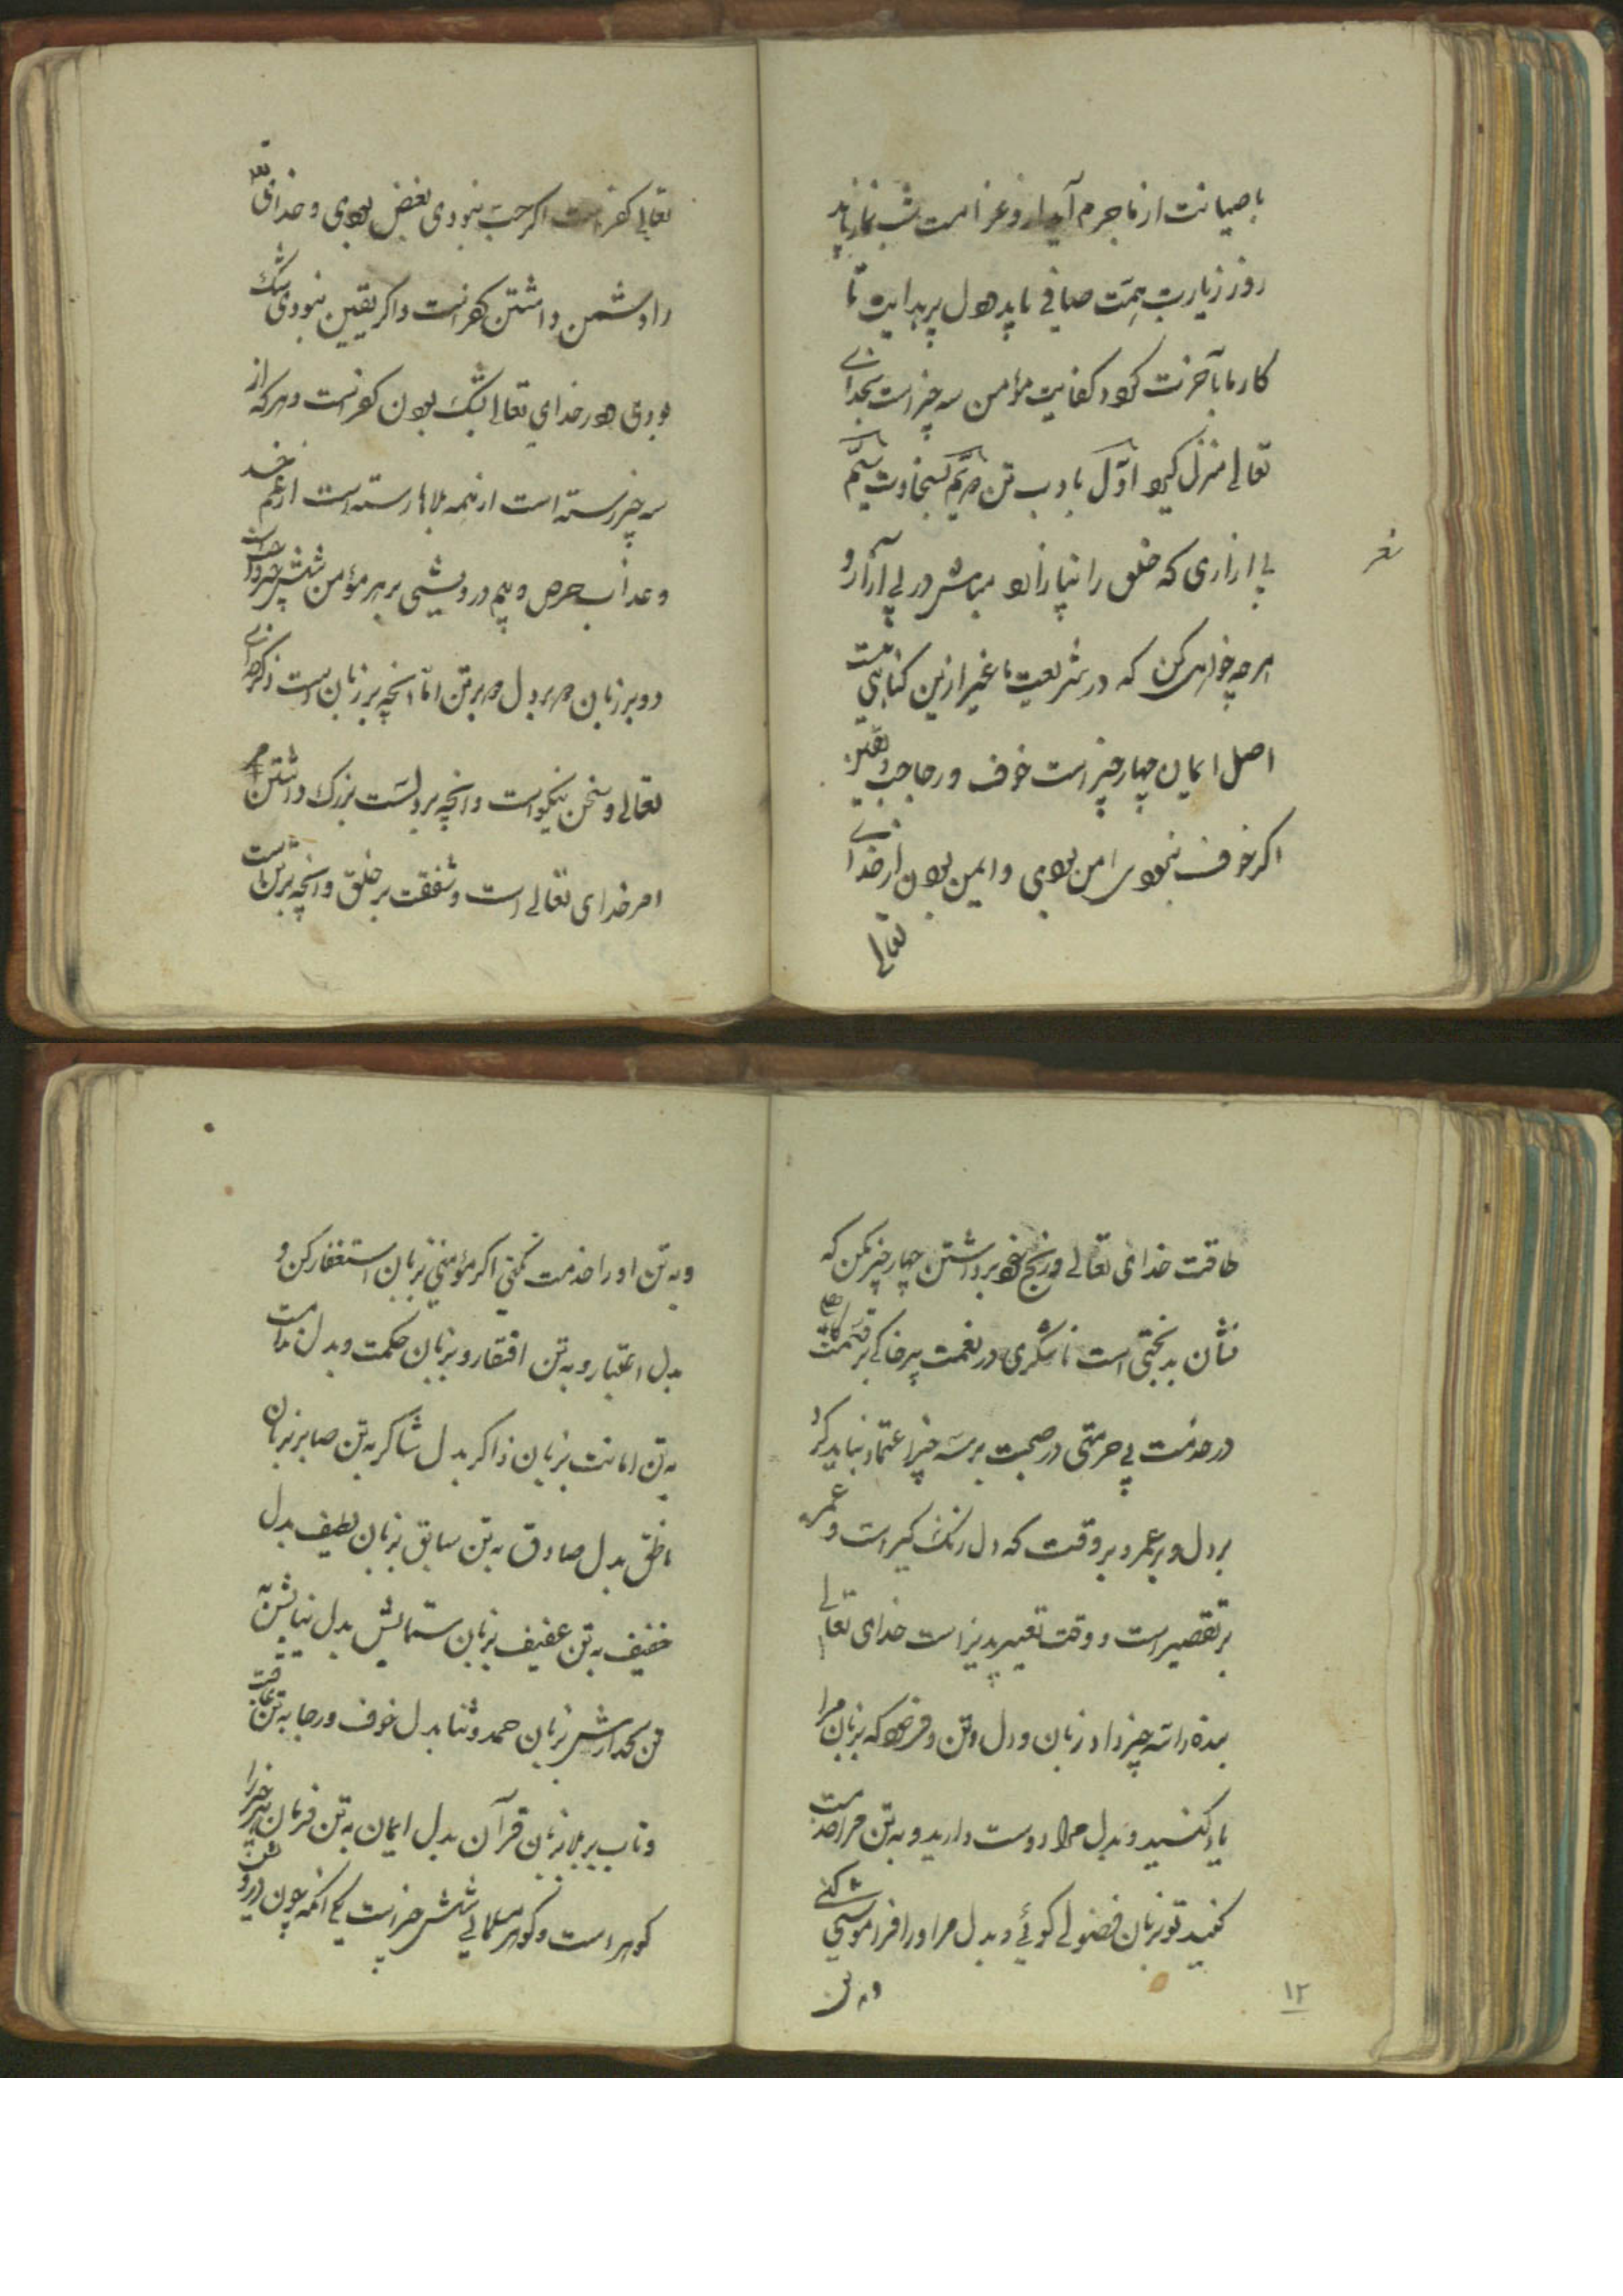 با صیانت از ما جرم آید از و غرامت شب نماز باید
روز زیارت همّت صافی باید دل پر هدایت تا
کار ما بآخرت کود کفایت مؤمن سه چیز است بخدای
تعالی منزل کیرد اوّل بادب تن دویّم بسخاوت سیّم
بی ازاری که خلق را نیازارد مباش در پی آزار و
شعر
هرچه خواهی کن که در شریعت ما غیر ازین کناهی نیست
اصل ایمان چهار چیز است خوف و رجا حب و یقین
اکر خوف نبودی امن بودی و ایمن بودن از خدای
تعالی
تعالی کفر است اکر حبّ نبودی بغض بودی و خدای تع
را دشمن داشتن کفر است و اکر یقین نبودی شک
بودی در خدای تعالی بشک بودن کفر است و هر که از
سه چیز رسته است از همه بلاها رسته است از غم
و عذاب حرص و بیم درویشی بر هر مؤمن شش چیز
دو بر زبان دو بر دل دو بر تن امّا انچه بر زبان است ذکر خدای
تعالی و سخن نیکو است و انچه بر دلست بزرک داشتن
امر خدای تعالی است و شفقت بر خلق و انچه بر تن است
طاقت خدای تعالی و رنج خود برداشتن چهار چیز مکن که
نشان بدبختی است ناشکری در نعمت
در خدمت بی حرمتی در صحبت بر سه چیز اعتماد نباید کرد
بر دل و بر عمر و بر وقت که دل رنک کیر است و عمر
بر تقصیر است و وقت تغییر پذیر است خدای تعالی
بنده را سه چیز داد زبان و دل و تن و فرمود که بزبان مرا
یاد کنید و بدل مرا دوست دارید و به تن مرا خدمت
کنید تو بزبان فضولی کوئی و بدل مر او را فراموشی کنی
و به تن
۱۲
و به تن او را خدمت نکنی اکر مؤمنی بزبان استغفار کن و
بدل اعتبار و به تن افتقار و بزبان حکمت و بدل ندامت
به تن امانت بزبان ذاکر بدل شاکر به تن صابر بزبان
ناطق بدل صادق به تن سابق بزبان لطیف بدل
خفیف به تن عفیف بزبان ستایش بدل نیایش به
تن کدازش بزبان حمد و ثنا بدل خوف و رجا به تن طاقت
و تاب بر بلا بزبان قرآن بدل ایمان به تن فرمان هر چیز را
کوهر است و کوهر مسلمانی شش چیز است یکی انکه چون